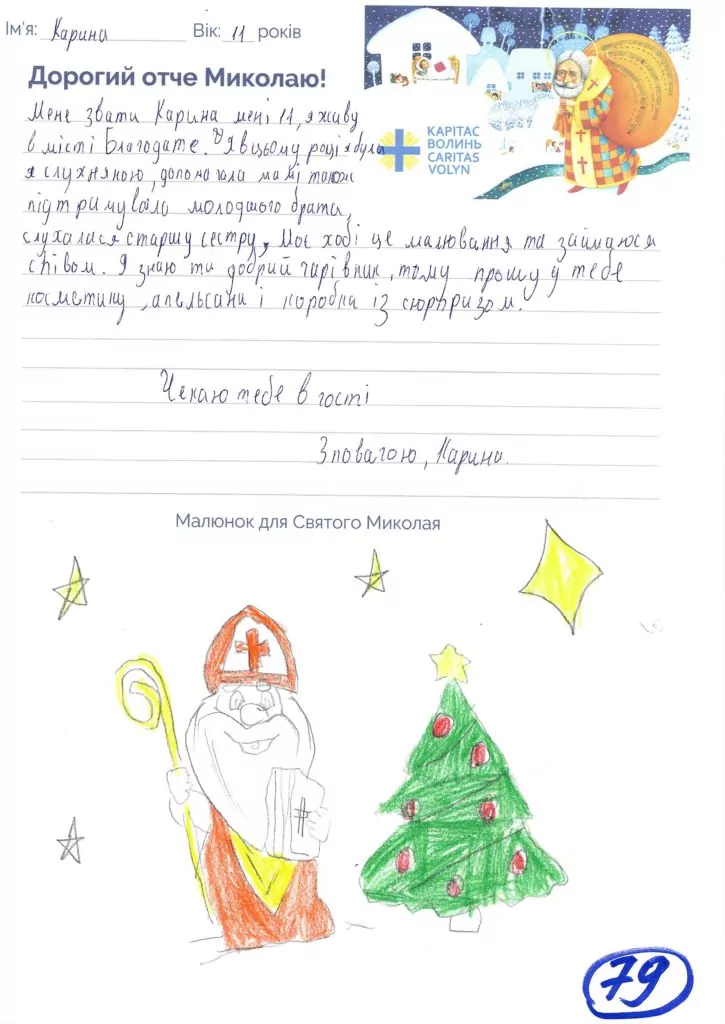 Ім'я: Карина Вік: 11 років
Дорогий отче Миколаю!
Мене звати Карина мені 11, я живу
в місті Благодатне. Я вцьому році я була
я слухняною, допомагала мамі також
підтримувала молодшого брата,
слухалася старшу сестру, Моє хобі це малювання та займаюся
співом. Я знаю ти добрий чарівник, тому прошу у тебе
косметику, апельсани і коробка із сюрпризом.
Чекаю тебе в гості
З повагою, Карина.
КАРІТАС
ВОЛИНЬ
CARITAS
VOLYN
Малюнок для Святого Миколая
79